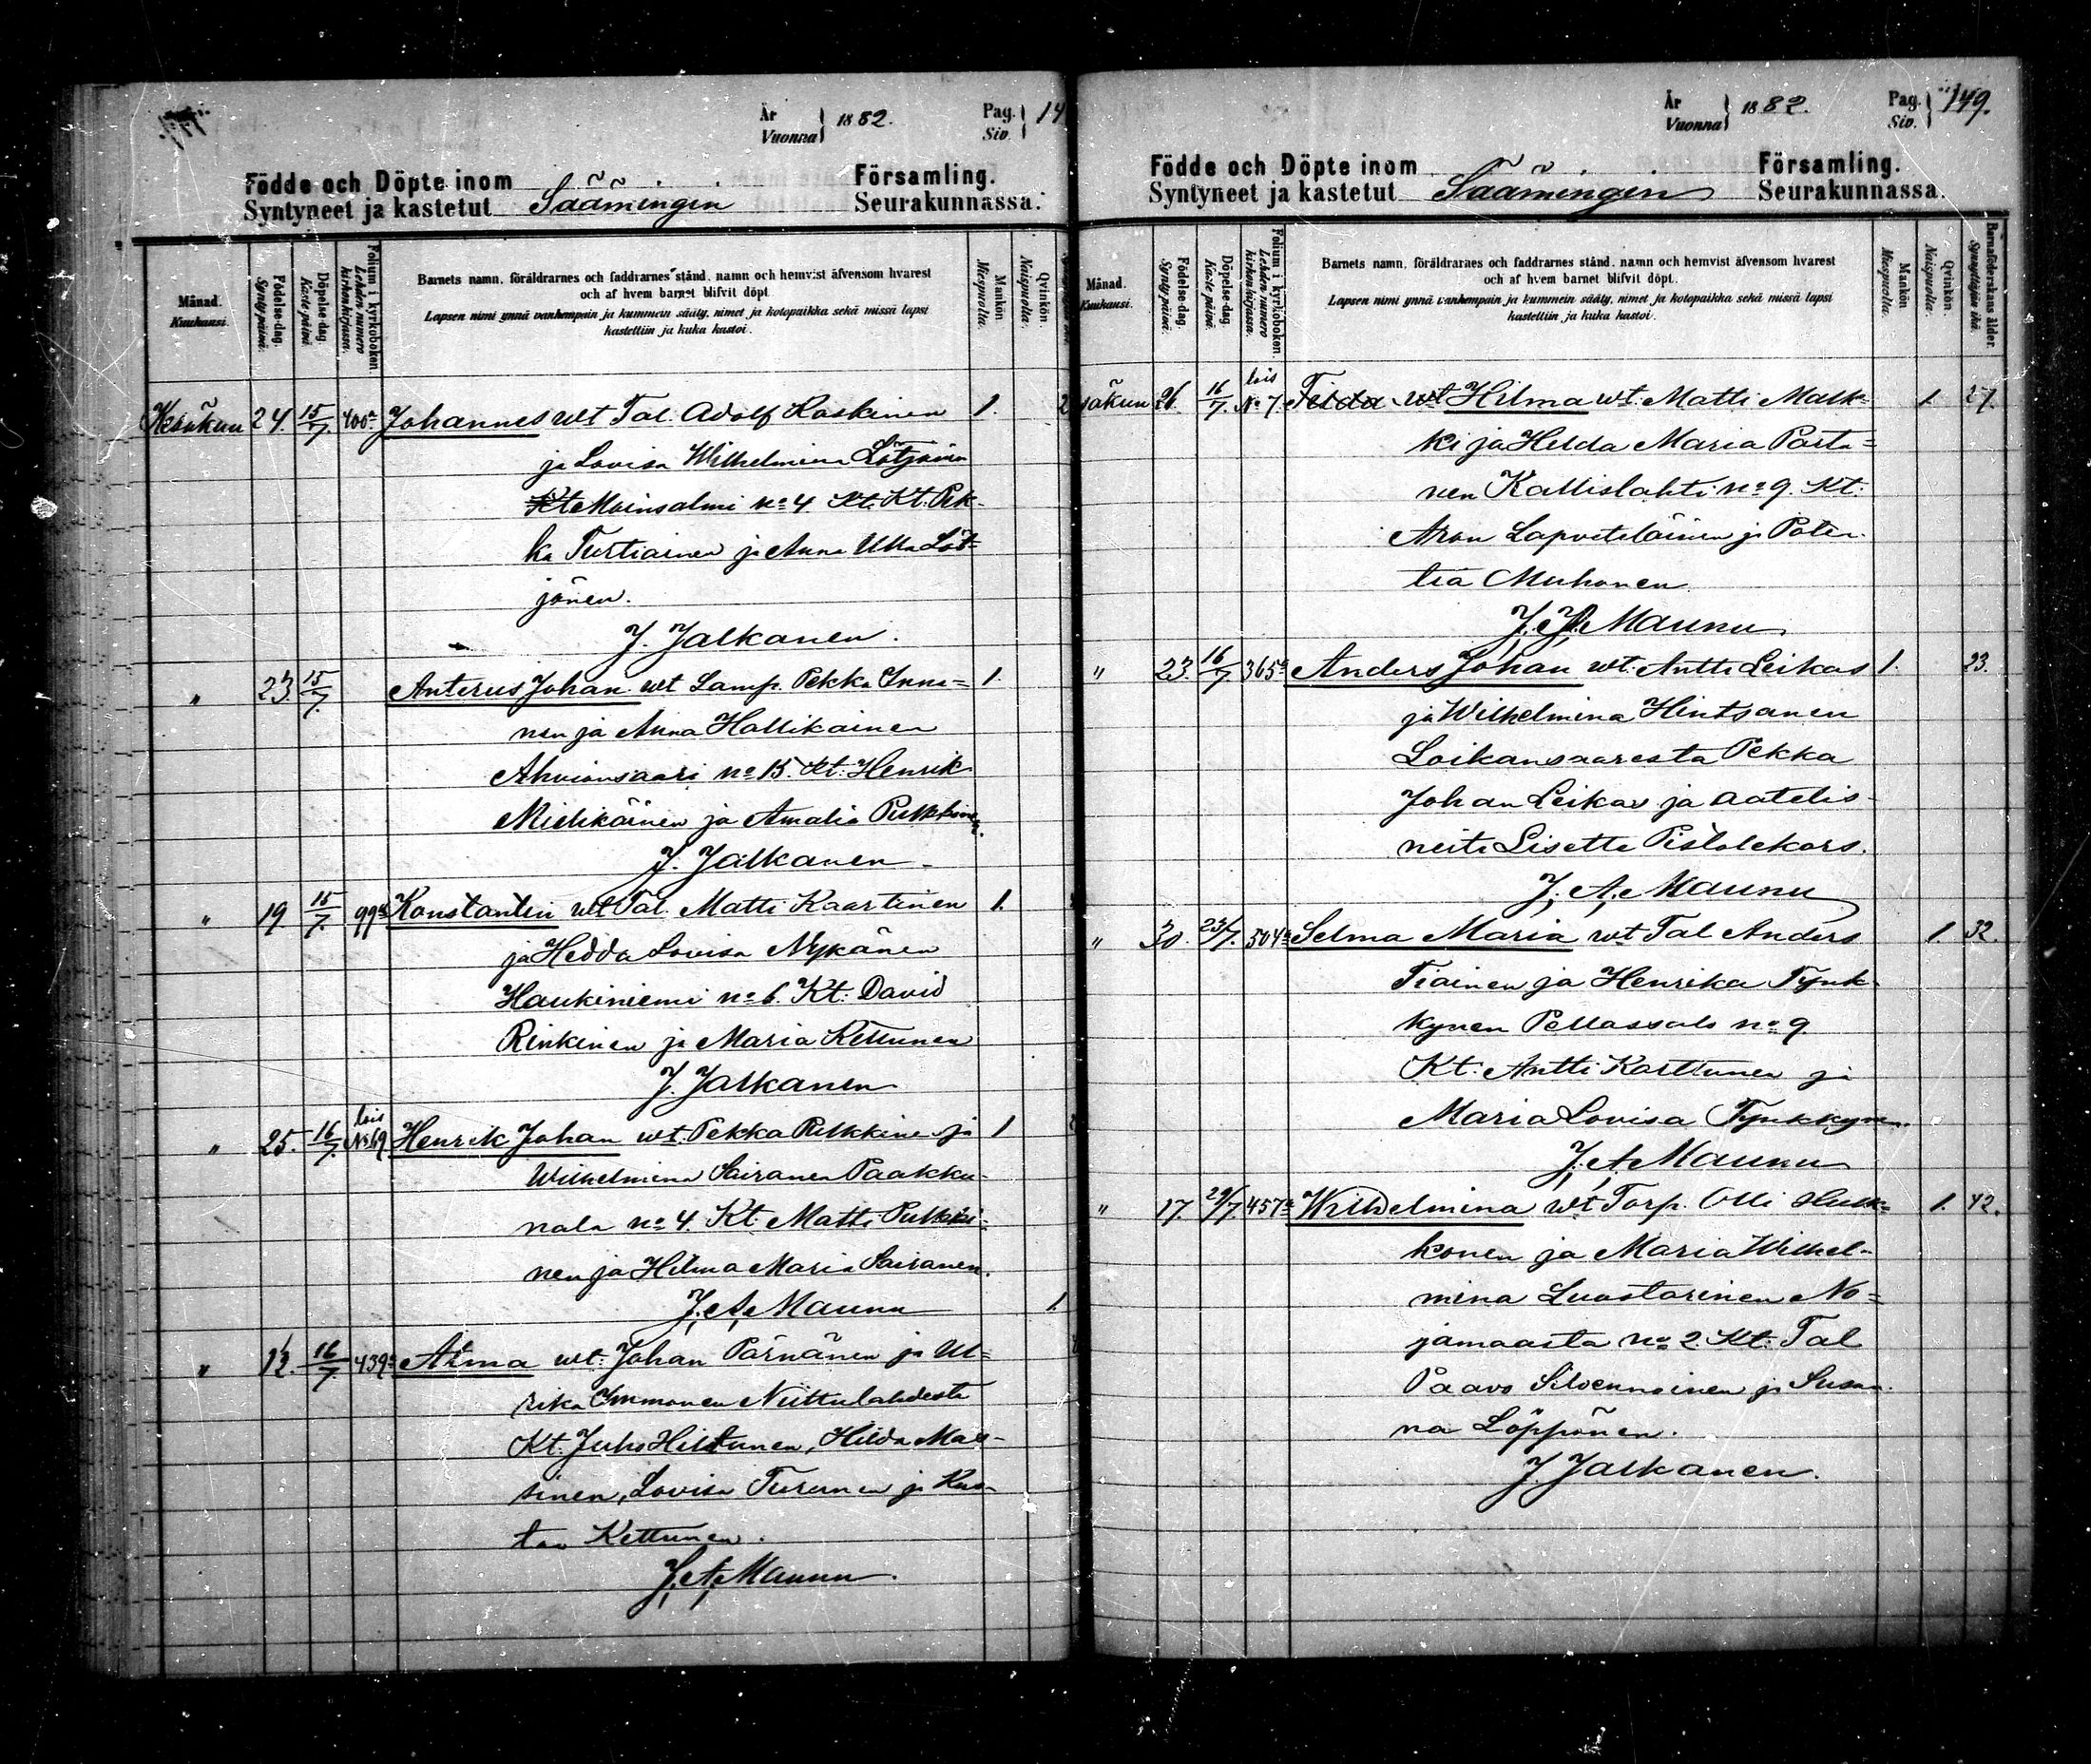 År
Vuonna } 1882.
Pag.
Siv. } 14
Födde och Döpte inom Församling.
Syntyneet ja kastetut Säämingin Seurakunnassa.
Månad. Kuukausi.
Födelse-dag. Synty-päivä.
Döpelse-dag. Kaste-päivä.
Folium i kyrkoboken. Lehden numero kirkonkirjassa.
Barnets namn, föräldrarnes och faddrarnes stånd, namn och hemvist äfvensom hvarest
och af hvem barnet blifvit döpt.
Lapsen nimi ynnä vanhempain ja kummein sääty, nimet ja kotopaikka sekä missä lapsi
kastettiin ja kuka kastoi.
Mankön Miespuolia.
Qvinkön. Naispuolia.
Kesäkuu 24. 15/7. 400a Johannes wt Tal. Adolf Koskinen 1. 2
ja Lovisa Wilhelmina Lötjönen
Kt Moinsalmi No 4 Kt. Kt. Pek-
ka Turtiainen ja Anna Ulla Löt-
jönen.
J. Jalkanen.
" 23. 15/7. Anterus Johan wt Lamp. Pekka Inna= 1.
nen ja Anna Hallikainen
Ahvionsaari No 15. Kt: Henrik
Mielikäinen ja Amalia Pulkkinen.
J. Jalkanen
" 19. 15/7. 99a Konstantin wt Tal. Matti Kaartinen 1.
ja Hedda Lovisa Nykänen
Haukiniemi No 6. Kt: David
Rinkinen ja Maria Kettunen
J. Jalkanen
lois
" 25. 16/7. No 69 Henrik Johan wt. Pekka Pulkkinen ja 1
Wilhelmina Sairanen Paakku-
nala No 4. Kt: Matti Pulkki-
nen ja Hilma Maria Sairanen.
J. A. Maunu 1.
" 12. 16/7. 439a Alma wt: Johan Pärnänen ja Ul=
rika Immonen Niittulahdesta
Kt: Juho Hiltunen, Hilda Mas-
sinen, Lovisa Turunen ja Kus-
taa Kettunen.
J. A. Maunu.
År
Vuonna } 1882.
Pag.
Siv. } 149.
Födde och Döpte inom Församling.
Syntyneet ja kastetut Säämingin Seurakunnassa.
Månad. Kuukausi.
Födelse-dag. Synty-päivä.
Döpelse-dag. Kaste-päivä.
Folium i kyrkioboken. Lehden numero kirkonkirjassa.
Barnets namn, föräldrarnes och faddrarnes stånd, namn och hemvist äfvensom hvarest
och af hvem barnet blifvit döpt.
Lapsen nimi ynnä vanhempain ja kummein sääty, nimet ja kotopaikka sekä missä lapsi
kastettiin ja kuka kastoi.
Mankön Miespuolia.
Qvinkön. Naispuolia.
Barnaföderskans ålder. Synnyttäjän ikä.
lois
säkuu 26. 16/7. No 7 Tilda wt Hilma wt. Matti Malk- 1. 27.
ki ja Helda Maria Parta=
nen Kallislahti No 9. Kt:
Aron Lapveteläinen ja Poten-
tia Muhonen
J. A. Maunu
" 23. 16/7 365a Anders Johan wt. Antti Leikas 1. 23.
ja Wilhelmina Hintsanen
Loikansaaresta Pekka
Johan Leikas ja aatelis-
neiti Lisette Pistolekors.
J. A. Maunu
" 30. 23/7. 504a Selma Maria wt Tal Anders 1. 32.
Tiainen ja Henrika Tynk-
kynen Pellossalo No 9
Kt: Antti Karttunen ja
Maria Lovisa Tynkkynen.
J. A. Maunu
" 17. 29/7. 457a Wilhelmina wt Torp. Olli Hulk= 1. 42.
konen ja Maria Wilhel-
mina Luostarinen No=
jamaasta No 2. Kt: Tal
Paavo Silvennoinen ja Susan-
na Löppönen.
J. Jalkanen.